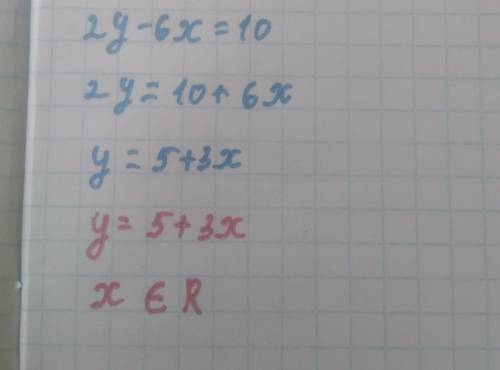 2y-6x=10
2y=10+6x
y=5+3x
y=5+3x
x ∈ R